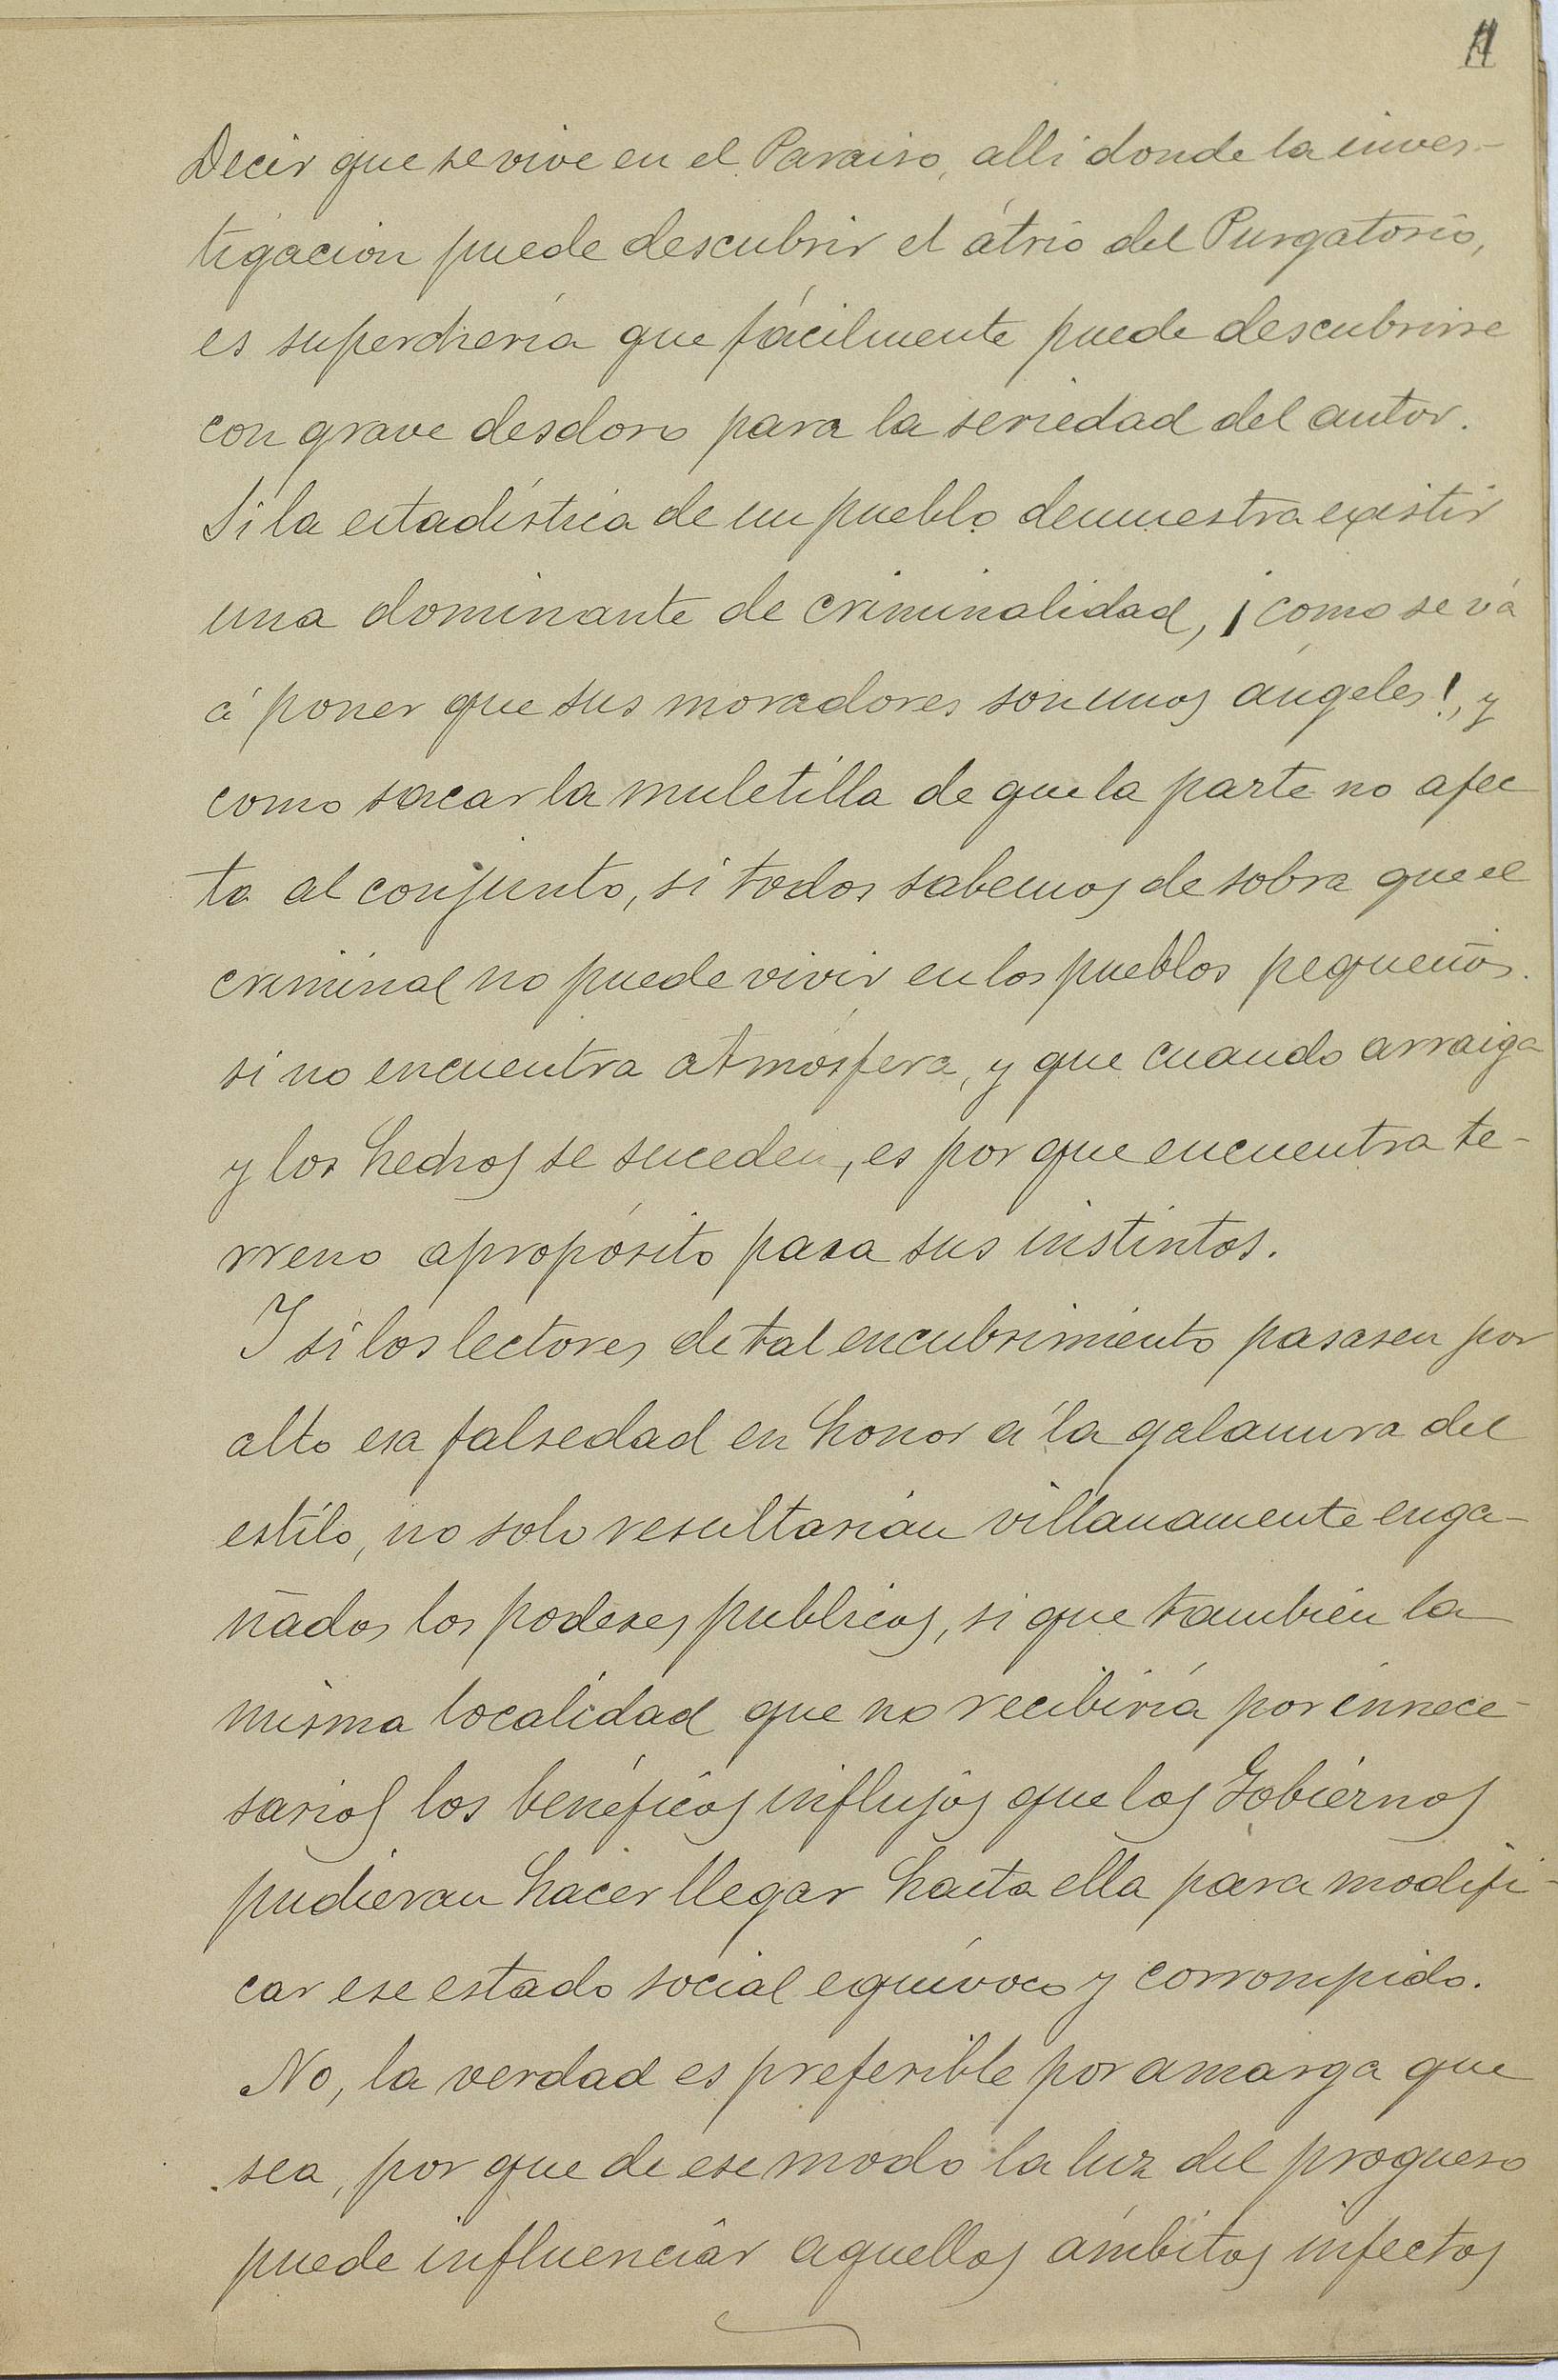 11
Decir que se vive en el Paraiso, alli donde la inves-
tigacion puede descubrir el átrio del Purgatorio,
es superchería que fácilmente puede descubrirse
con grave desdoro para la seriedad del autor.
Si la estadística de un pueblo demuestra existir
una dominante de criminalidad, ¡como se vá
á poner que sus moradores son unos ángeles!, y
como sacar la muletilla de que la parte no afec
ta al conjunto, si todos sabemos de sobra que el
criminal no puede vivir en los pueblos pequeños.
si no encuentra atmósfera, y que cuando arraiga
y los hechos se suceden, es por que encuentra te-
rreno apropósito para sus instintos.
Y si los lectores de tal encubrimiento pasasen por
alto esa falsedad en honor á la galanura del
estilo, no solo resultarían villanamente enga-
ñados los poderes publicos, si que también la
misma localidad que no recibiría por innece-
sarios los benéficos influjos que los Gobiernos
pudieran hacer llegar hasta ella para modifi-
car ese estado social equívoco y corrompido.
No, la verdad es preferible por amarga que
sea, por que de ese modo la luz del progreso
puede influenciar aquellos ámbitos infectos